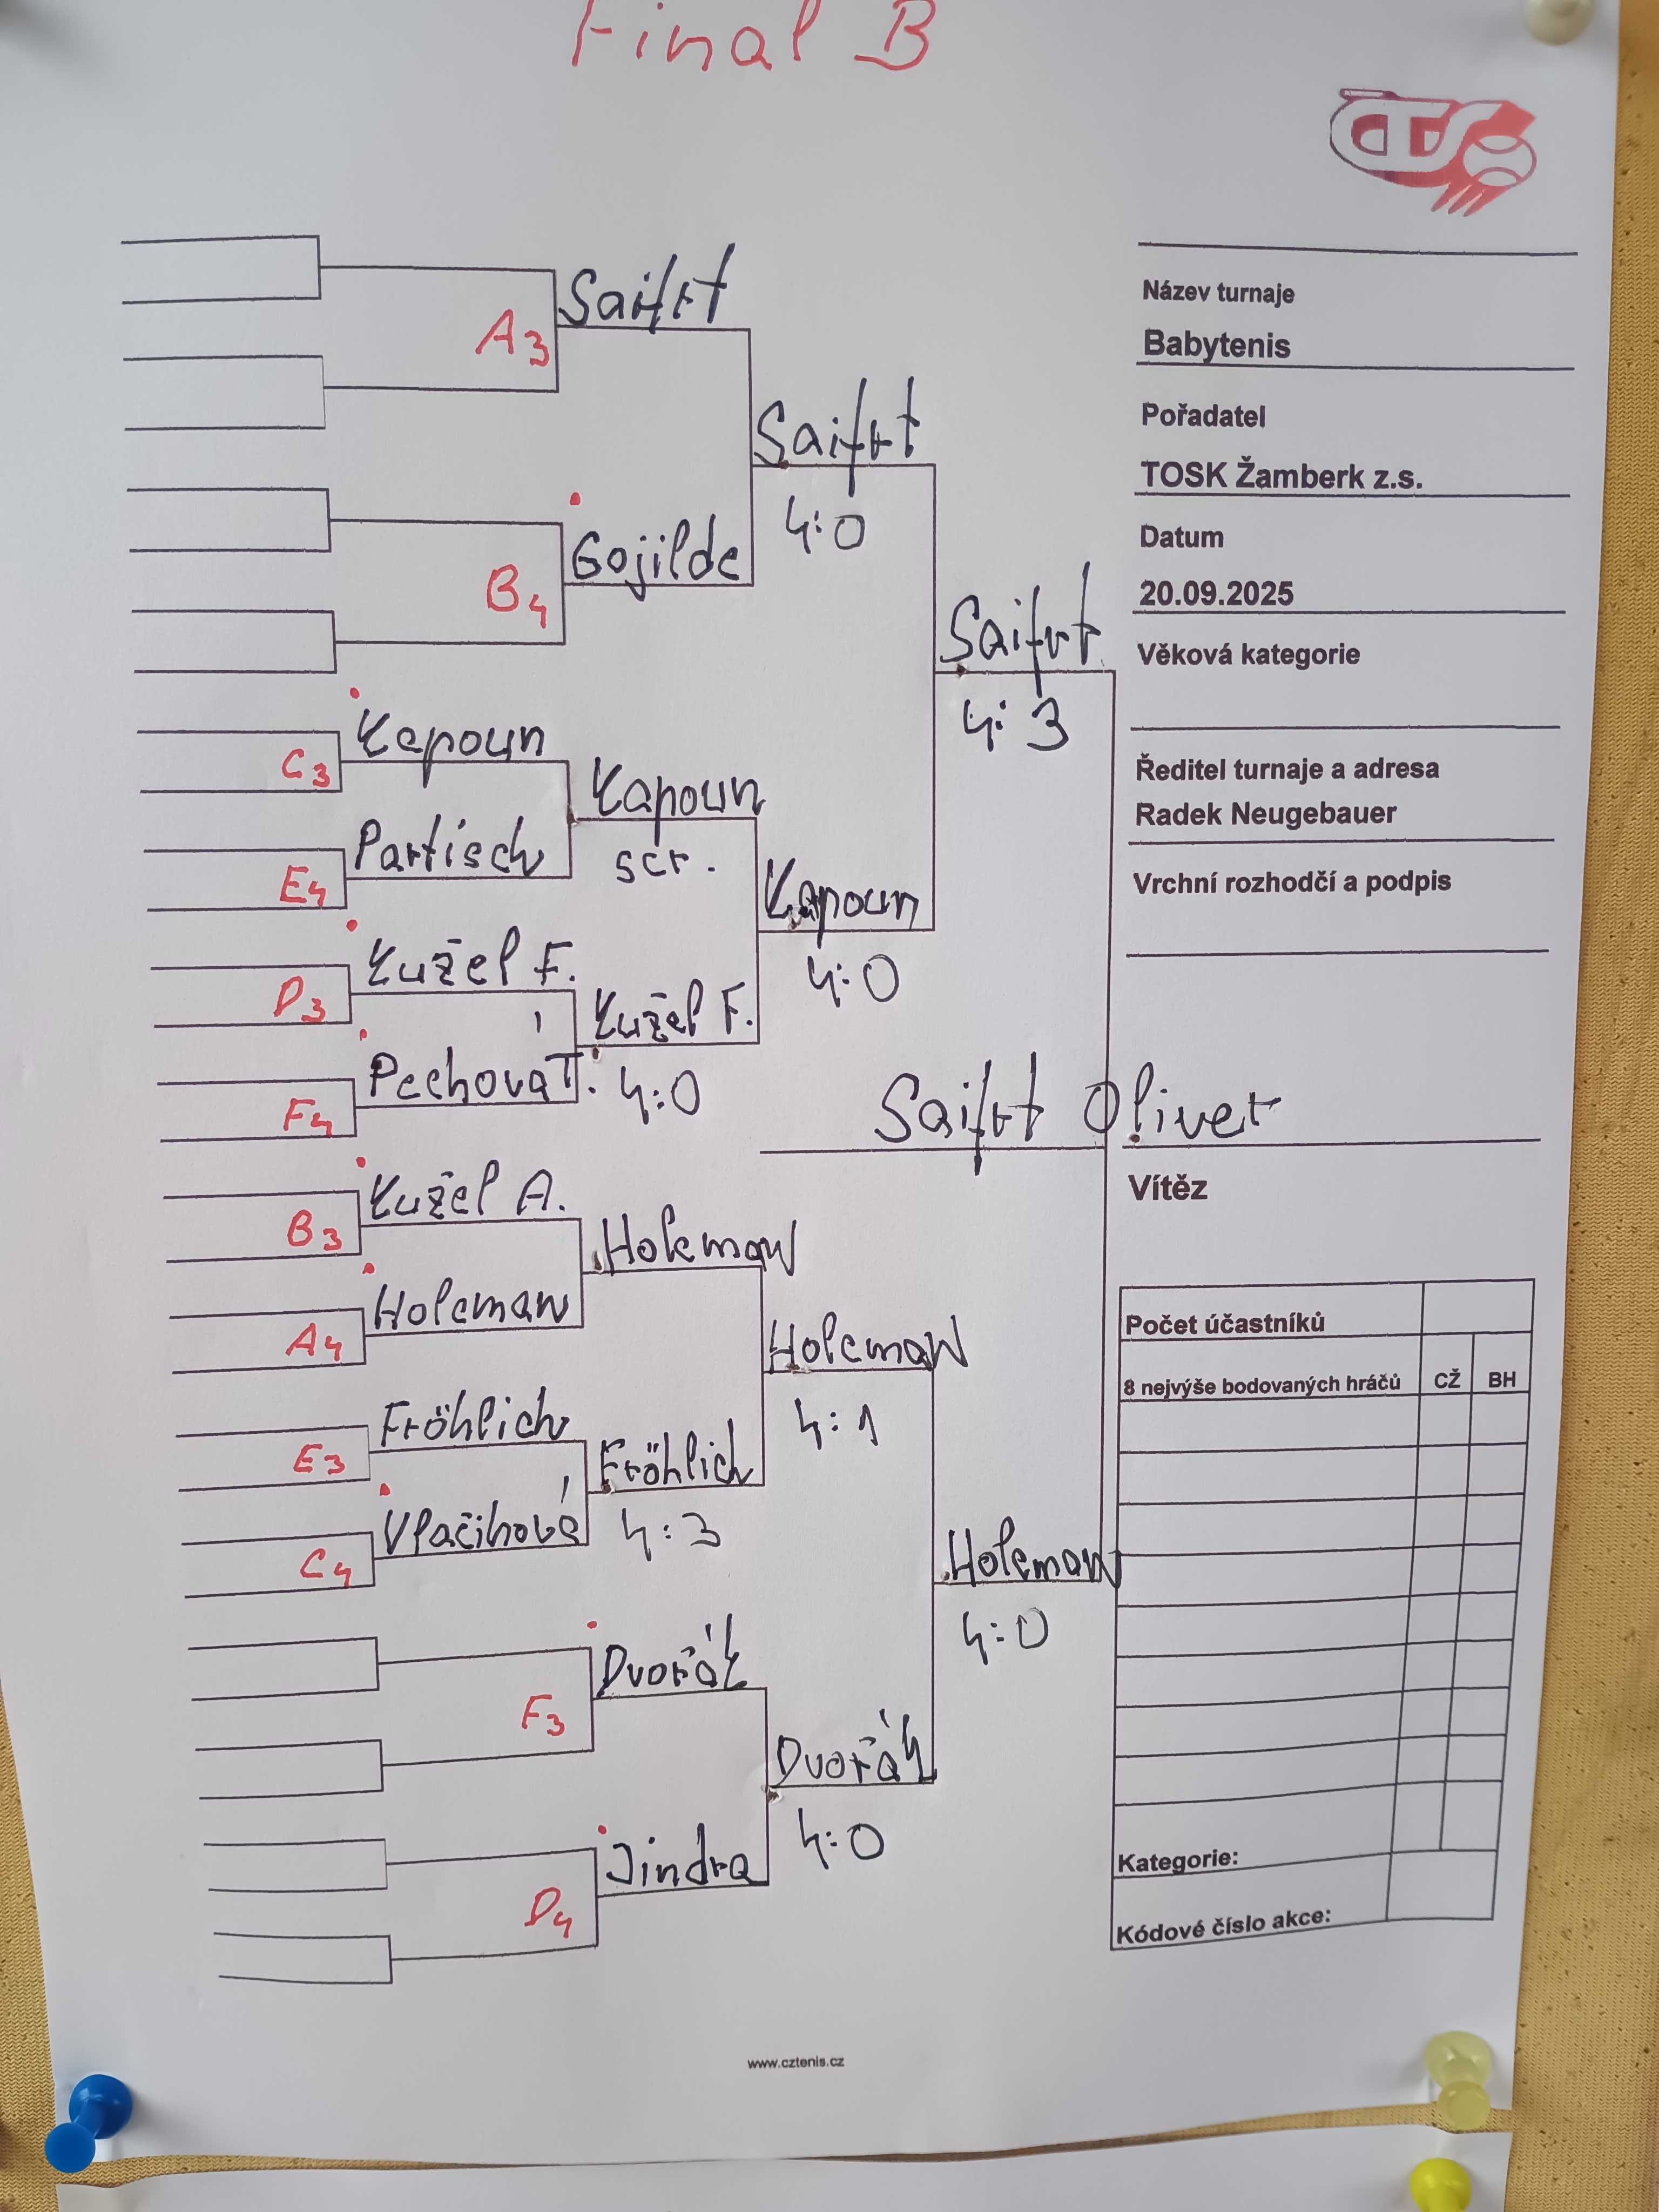 Final B
Saifrt
A3
Saifrt
4:0
Gojilde
B4
Saifrt
4:3
Kapoun
C3
Kapoun
scr.
Partisch
E4
Kapoun
4:0
Kužel F.
D3
Kužel F.
4:0
Pechová T.
F4
Saifrt Oliver
Kužel A.
B3
Holeman
Holeman
A4
Holeman
4:1
Fröhlich
E3
Fröhlich
4:3
Vlačihová
C4
Holeman
4:0
Dvořák
F3
Dvořák
4:0
Jindra
D4
Název turnaje
Babytenis
Pořadatel
TOSK Žamberk z.s.
Datum
20.09.2025
Věková kategorie
Ředitel turnaje a adresa
Radek Neugebauer
Vrchní rozhodčí a podpis
Vítěz
Počet účastníků
8 nejvýše bodovaných hráčů CŽ BH
Kategorie:
Kódové číslo akce:
www.cztenis.cz